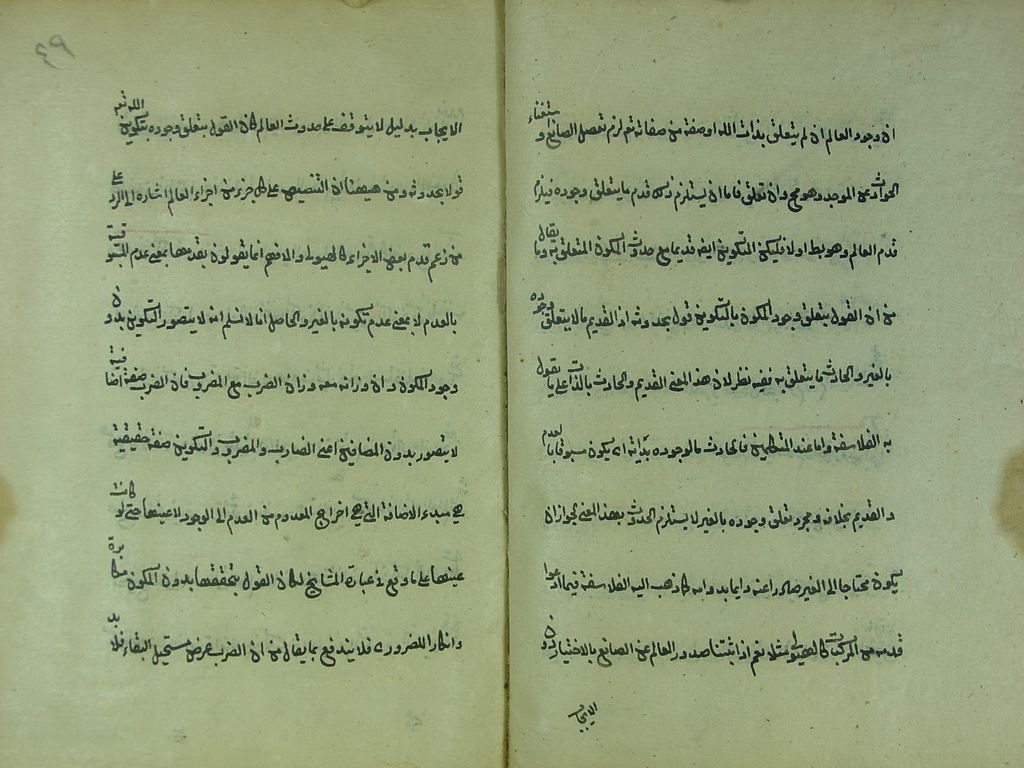 ان وجود العالم ان لم يتعلق بذات الله او صفة من صفاته تع لزم تعطل الصانع و استغناء
الحوادث عن الموجد وهو مح وان تعلق فاما ان يستلزم ذلك قدم ما يتعلق وجوده فيلزم
قدم العالم وهو بط او لا فليكن التكوين ايضا قديما مع حدوث المكون المتعلق به وما يقال
من ان القول بتعلق وجود المكون بالتكوين قول بحدوثه اذ القديم ما لا يتعلق وجوده
بالغير والحادث ما يتعلق به ففيه نظر لان هذا معنى القديم والحادث بالذات على ما يقول
به الفلاسفة واما عند المتكلمين فالحادث ما لوجوده بداية اى يكون مسبوقا بالعدم
والقديم بخلافه ومجرد تعلق وجوده بالغير لا يستلزم الحدوث بهذا المعنى لجواز ان
يكون محتاجا الى الغير صادرا عنه دايما بدوامه كما ذهب اليه الفلاسفة فيما ادعوا
قدمه من الممكنات كالهيولى مثلا نعم اذا اثبتنا صدور العالم عن الصانع بالاختيار دون
الايجاب
٤٩
الايجاب بدليل لا يتوقف على حدوث العالم كان القول بتعلق وجوده بتكوين الله تع
قولا بحدوثه ومن ههنا ان التنصيص على كل جزء من اجزاء العالم اشارة الى الرد على
من زعم قدم بعض الاجزاء كالهيولى والا فهم انما يقولون بقدمها بمعنى عدم المسبوقية
بالعدم لا بمعنى عدم تكونه بالغير والحاصل انا لا نسلم انه لا يتصور التكوين بدون
وجود المكون وان وزانه معه وزان الضرب مع المضروب فان الضرب صفة اضافية
لا يتصور بدون المضافين اعنى الضارب والمضروب والتكوين صفة حقيقية
هى مبدء الاضافة التى هى اخراج المعدوم من العدم الى الوجود لا عينها حتى لو كانت
عينها على ما وقع فى عبارة المشايخ لكان القول بتحققها بدون المكون مكابرة
وانكارا للضرورى فلا يندفع بما يقال من ان الضرب عرض مستحيل البقاء فلا بد